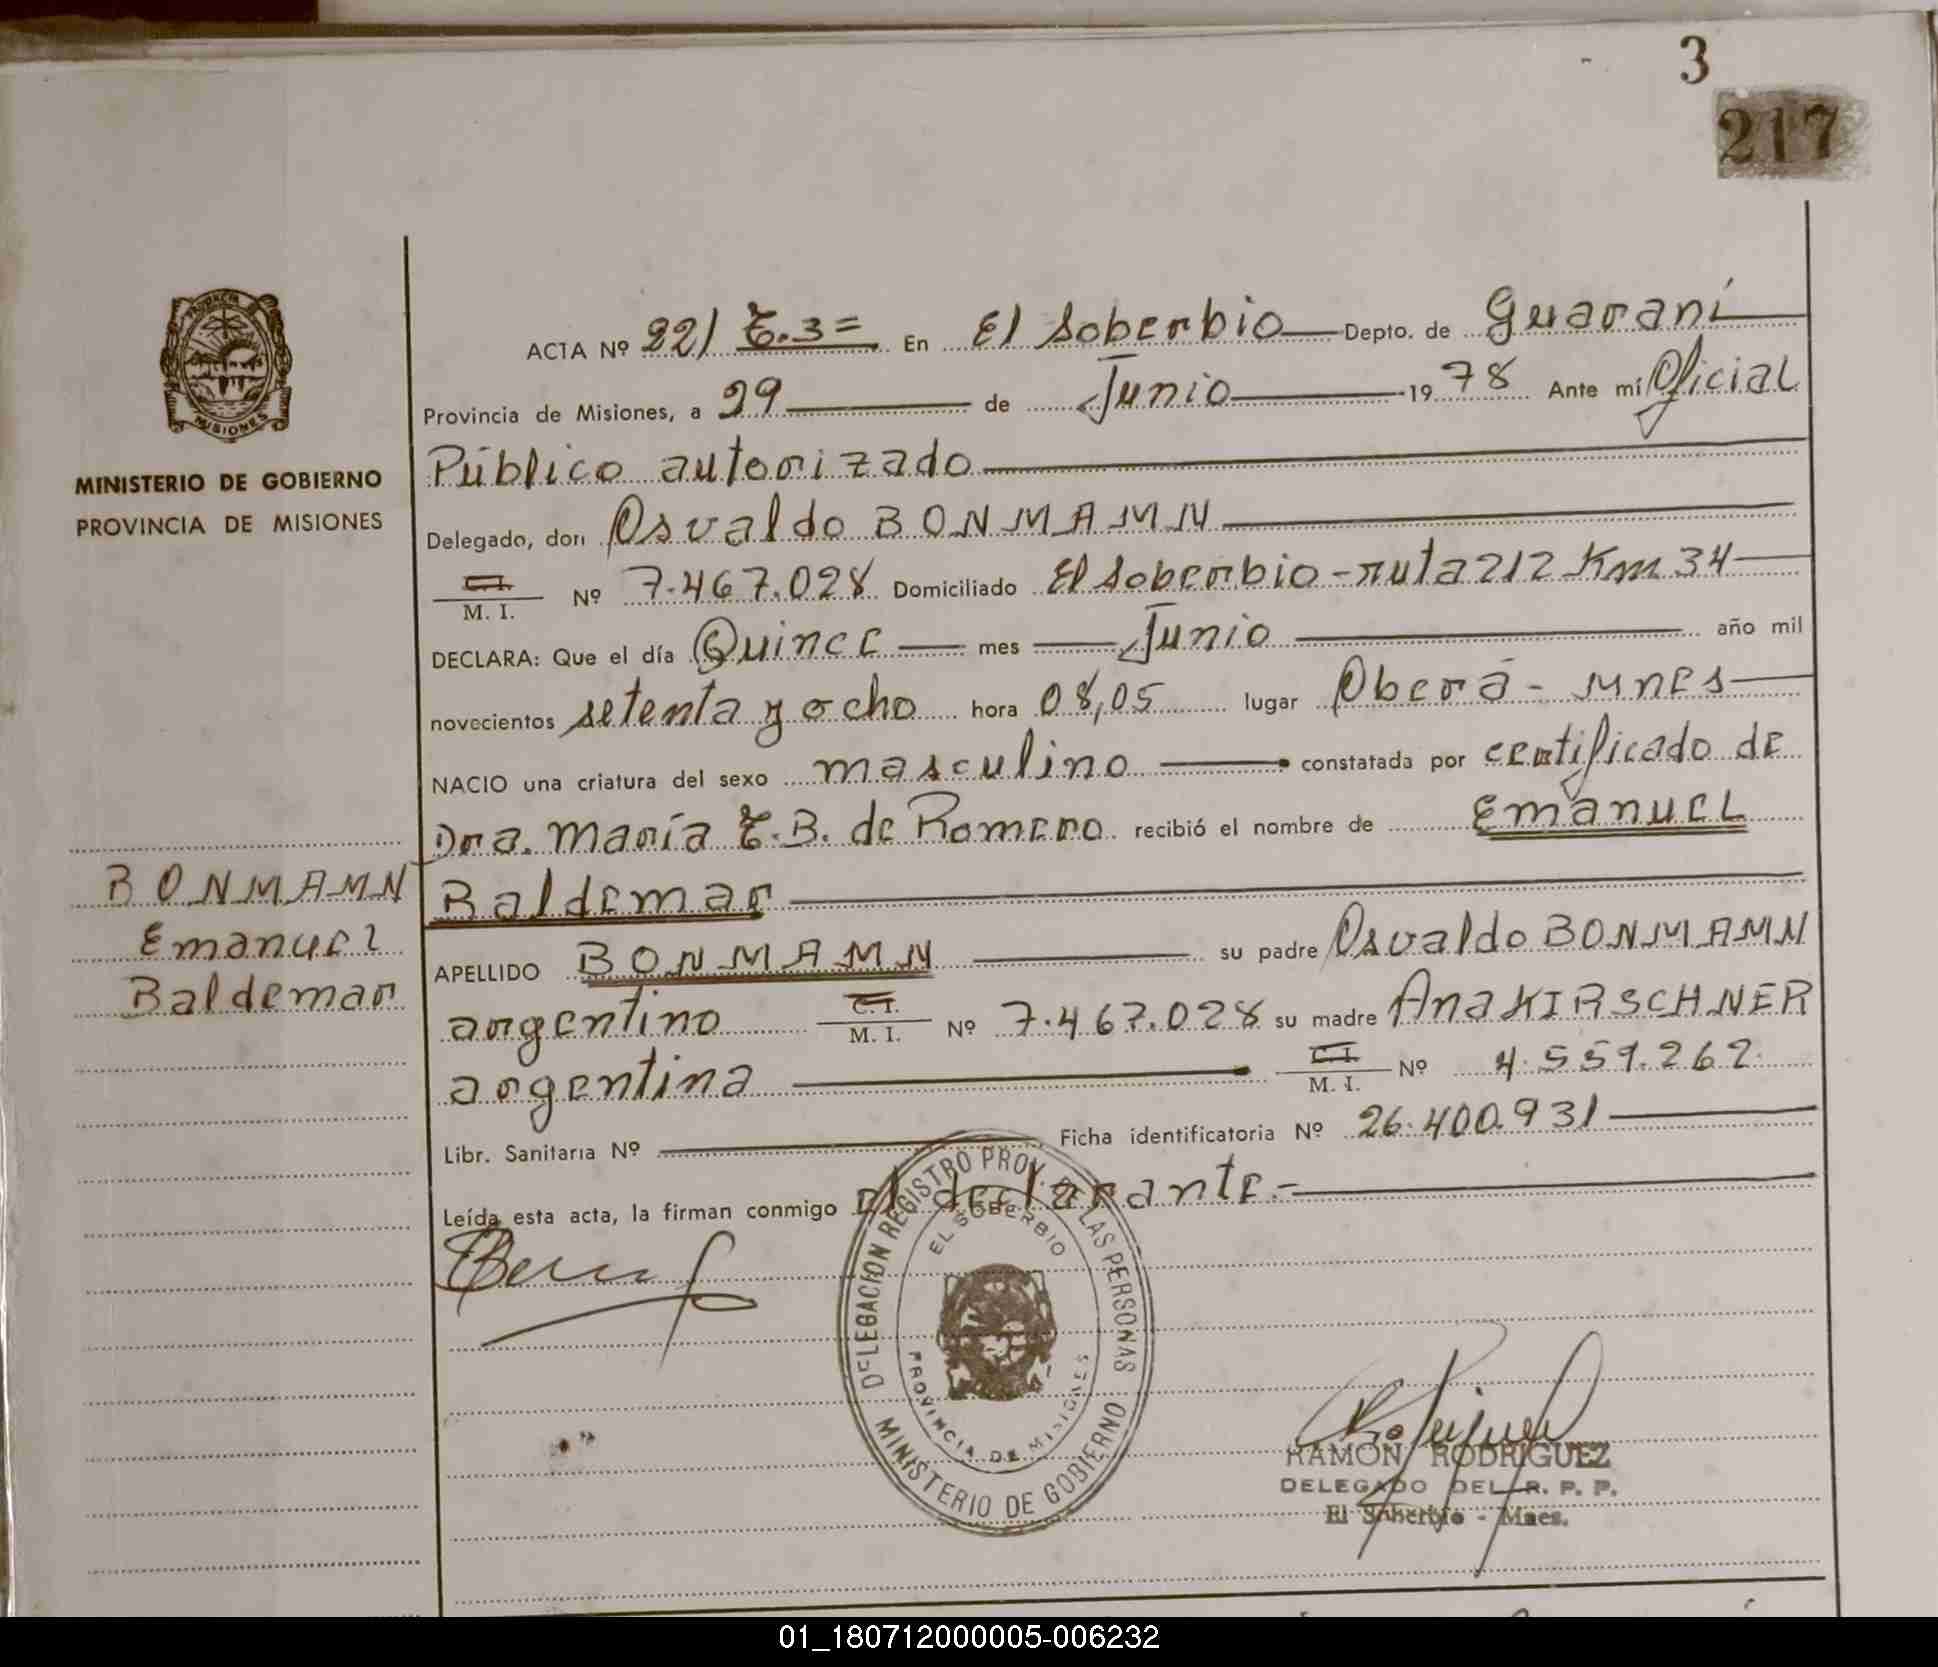 3
217
PROVINCIA DE
MISIONES
MINISTERIO DE GOBIERNO
PROVINCIA DE MISIONES
ACTA Nº 221 T.3= En El Soberbio Depto. de Guaraní
Provincia de Misiones, a 29 de Junio 1978 Ante mí Oficial
Público autorizado
Delegado, don Osvaldo BONMAMN
C.I. M. I. Nº 7.467.028 Domiciliado El Soberbio-ruta 212 Km 34
DECLARA: Que el día Quince mes Junio año mil
novecientos setenta y ocho hora 08,05 lugar Oberá - Mnes
NACIO una criatura del sexo masculino constatada por certificado de
Dra. María T.B. de Romero recibió el nombre de Emanuel
Baldemar
BONMAMN
Emanuel
Baldemar
APELLIDO BONMAMN su padre Osvaldo BONMAMN
argentino C.I. M. I. Nº 7.467.028 su madre Ana KIRSCHNER
argentina C.I. M. I. Nº 4.551.262
Libr. Sanitaria Nº Ficha identificatoria Nº 26.400.931
Leída esta acta, la firman conmigo el declarante.-
DELEGACION REGISTRO PROV. DE LAS PERSONAS
EL SOBERBIO
PROVINCIA DE MISIONES
MINISTERIO DE GOBIERNO
RAMON RODRIGUEZ
DELEGADO DEL R. P. P.
El Soberbio - Mnes.
01_180712000005-006232